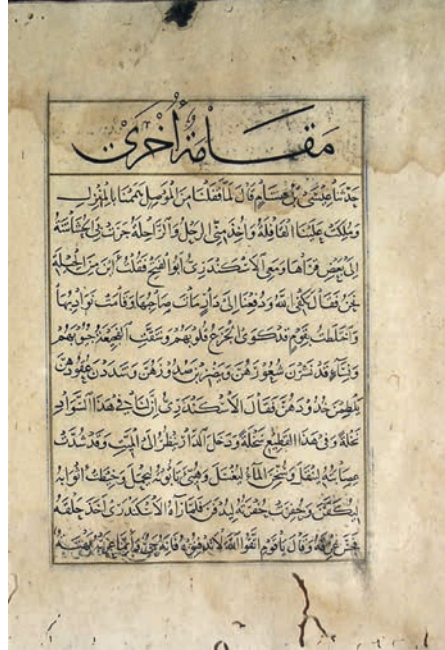 مقامة أخرى
حدثنا عيسى بن هشام قال لما قفلنا من الموصل وهممنا بالمنزل
وملكت علينا القافلة وأخذ مني الرحل والراحلة جرت بي الحشاشة
إلى بعض قراها ومعي الاسكندري أبو الفتح فقلت أين من الحيلة
نحن فقال يكفي الله ودفعنا إلى دار مات صاحبها وقامت نوادبها
واحتفلت بقوم قد كوى الجزع قلوبهم وشقت الفجيعة جيوبهم
ونساء قد نشرن شعورهن يضربن صدورهن وشددن عقودهن
يلطمن خدودهن فقال الاسكندري إن لنا في هذا السواد
نخلة وفي هذا القطيع سخلة ودخل الدار ينظر إلى الميت وقد شدت
عصابته لينقل وسخن الماء ليغسل وهيئ تابوته ليحمل وخيطت أثوابه
ليكفن وحفرت حفرته ليدفن فلما رآه الاسكندري أخذ حلقه
فجس عرقه وقال يا قوم اتقوا الله لا تدفنوه فانه حي